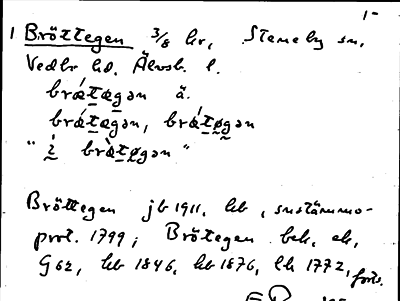 1-
1 Bröttegen 3/8 hr, Steneby sn,
Vedbo hd. Älvsb. l.
brǽtægən ä.
brǽtægən, brǽtøgən
" i̇̀ brætøgən "
Bröttegen jb 1911, kb, snstämmo-
prot. 1799; Brötegen bek, ek,
G 62, hb 1846, hb 1876, lh 1772, forts.